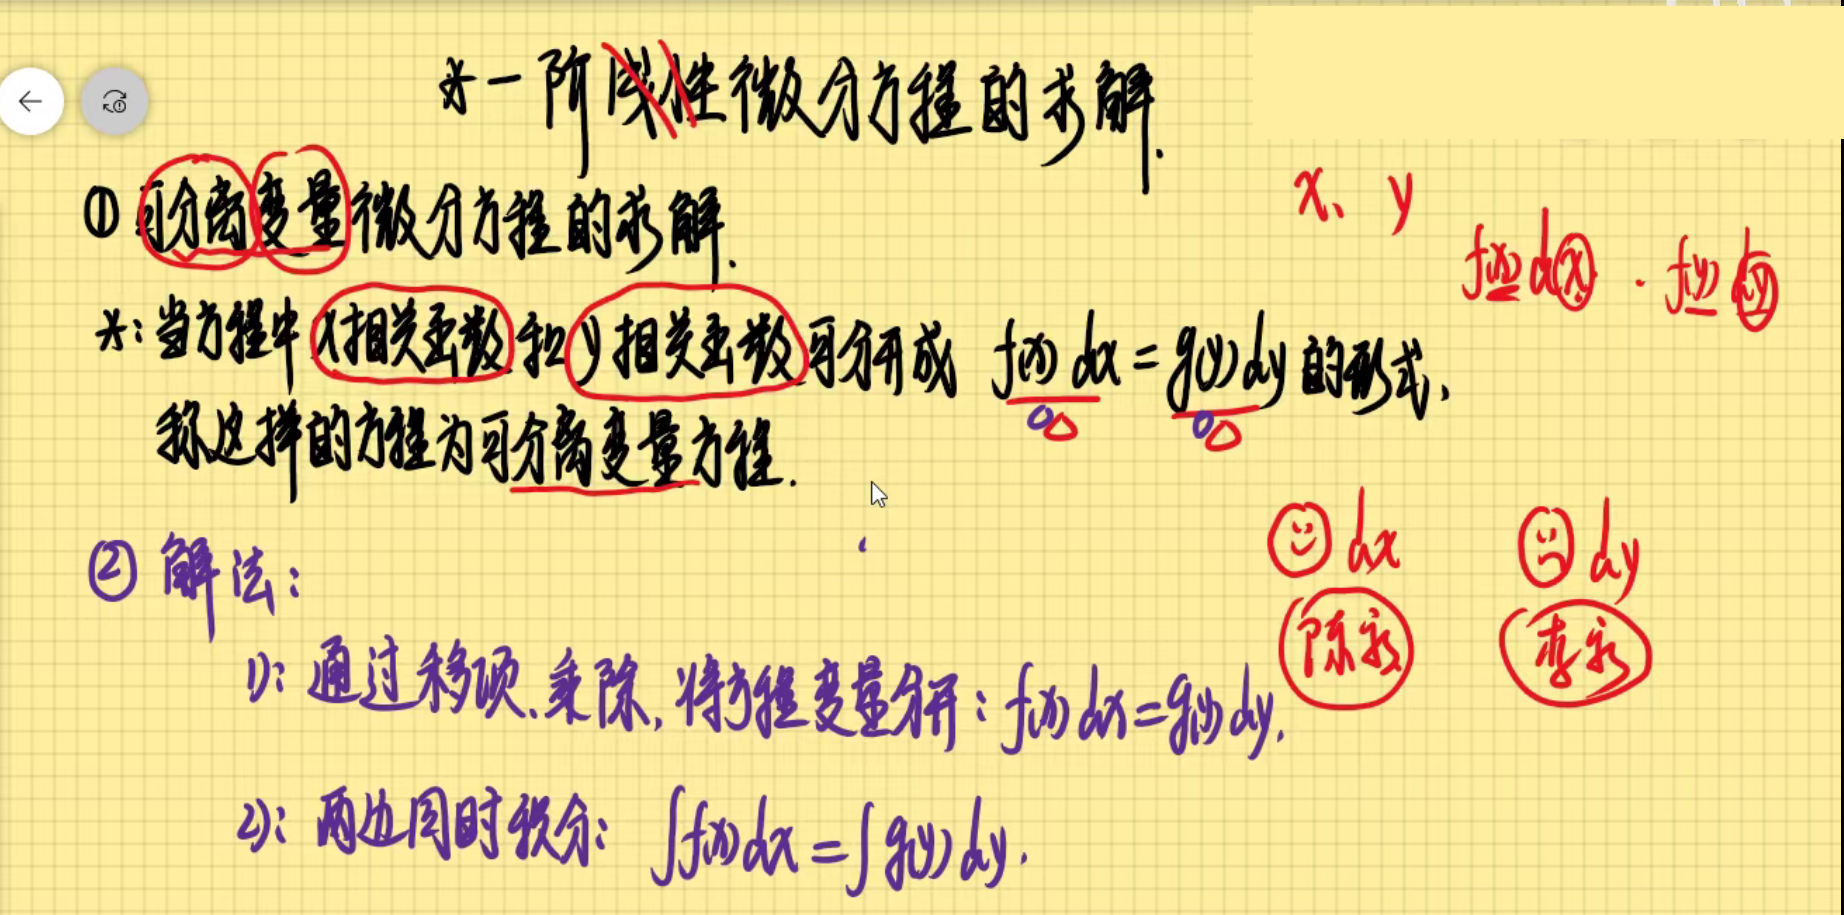 *一阶线性微分方程的求解.
① 可分离变量微分方程的求解.
x、y
f(x)dx · f(y)dy
*:当方程中x相关函数和y相关函数可分开成 f(x)dx=g(y)dy的形式,
称这样的方程为可分离变量方程.
dx dy
② 解法:
1): 通过移项、乘除,将方程变量分开: f(x)dx=g(y)dy.
2): 两边同时积分: ∫f(x)dx=∫g(y)dy.